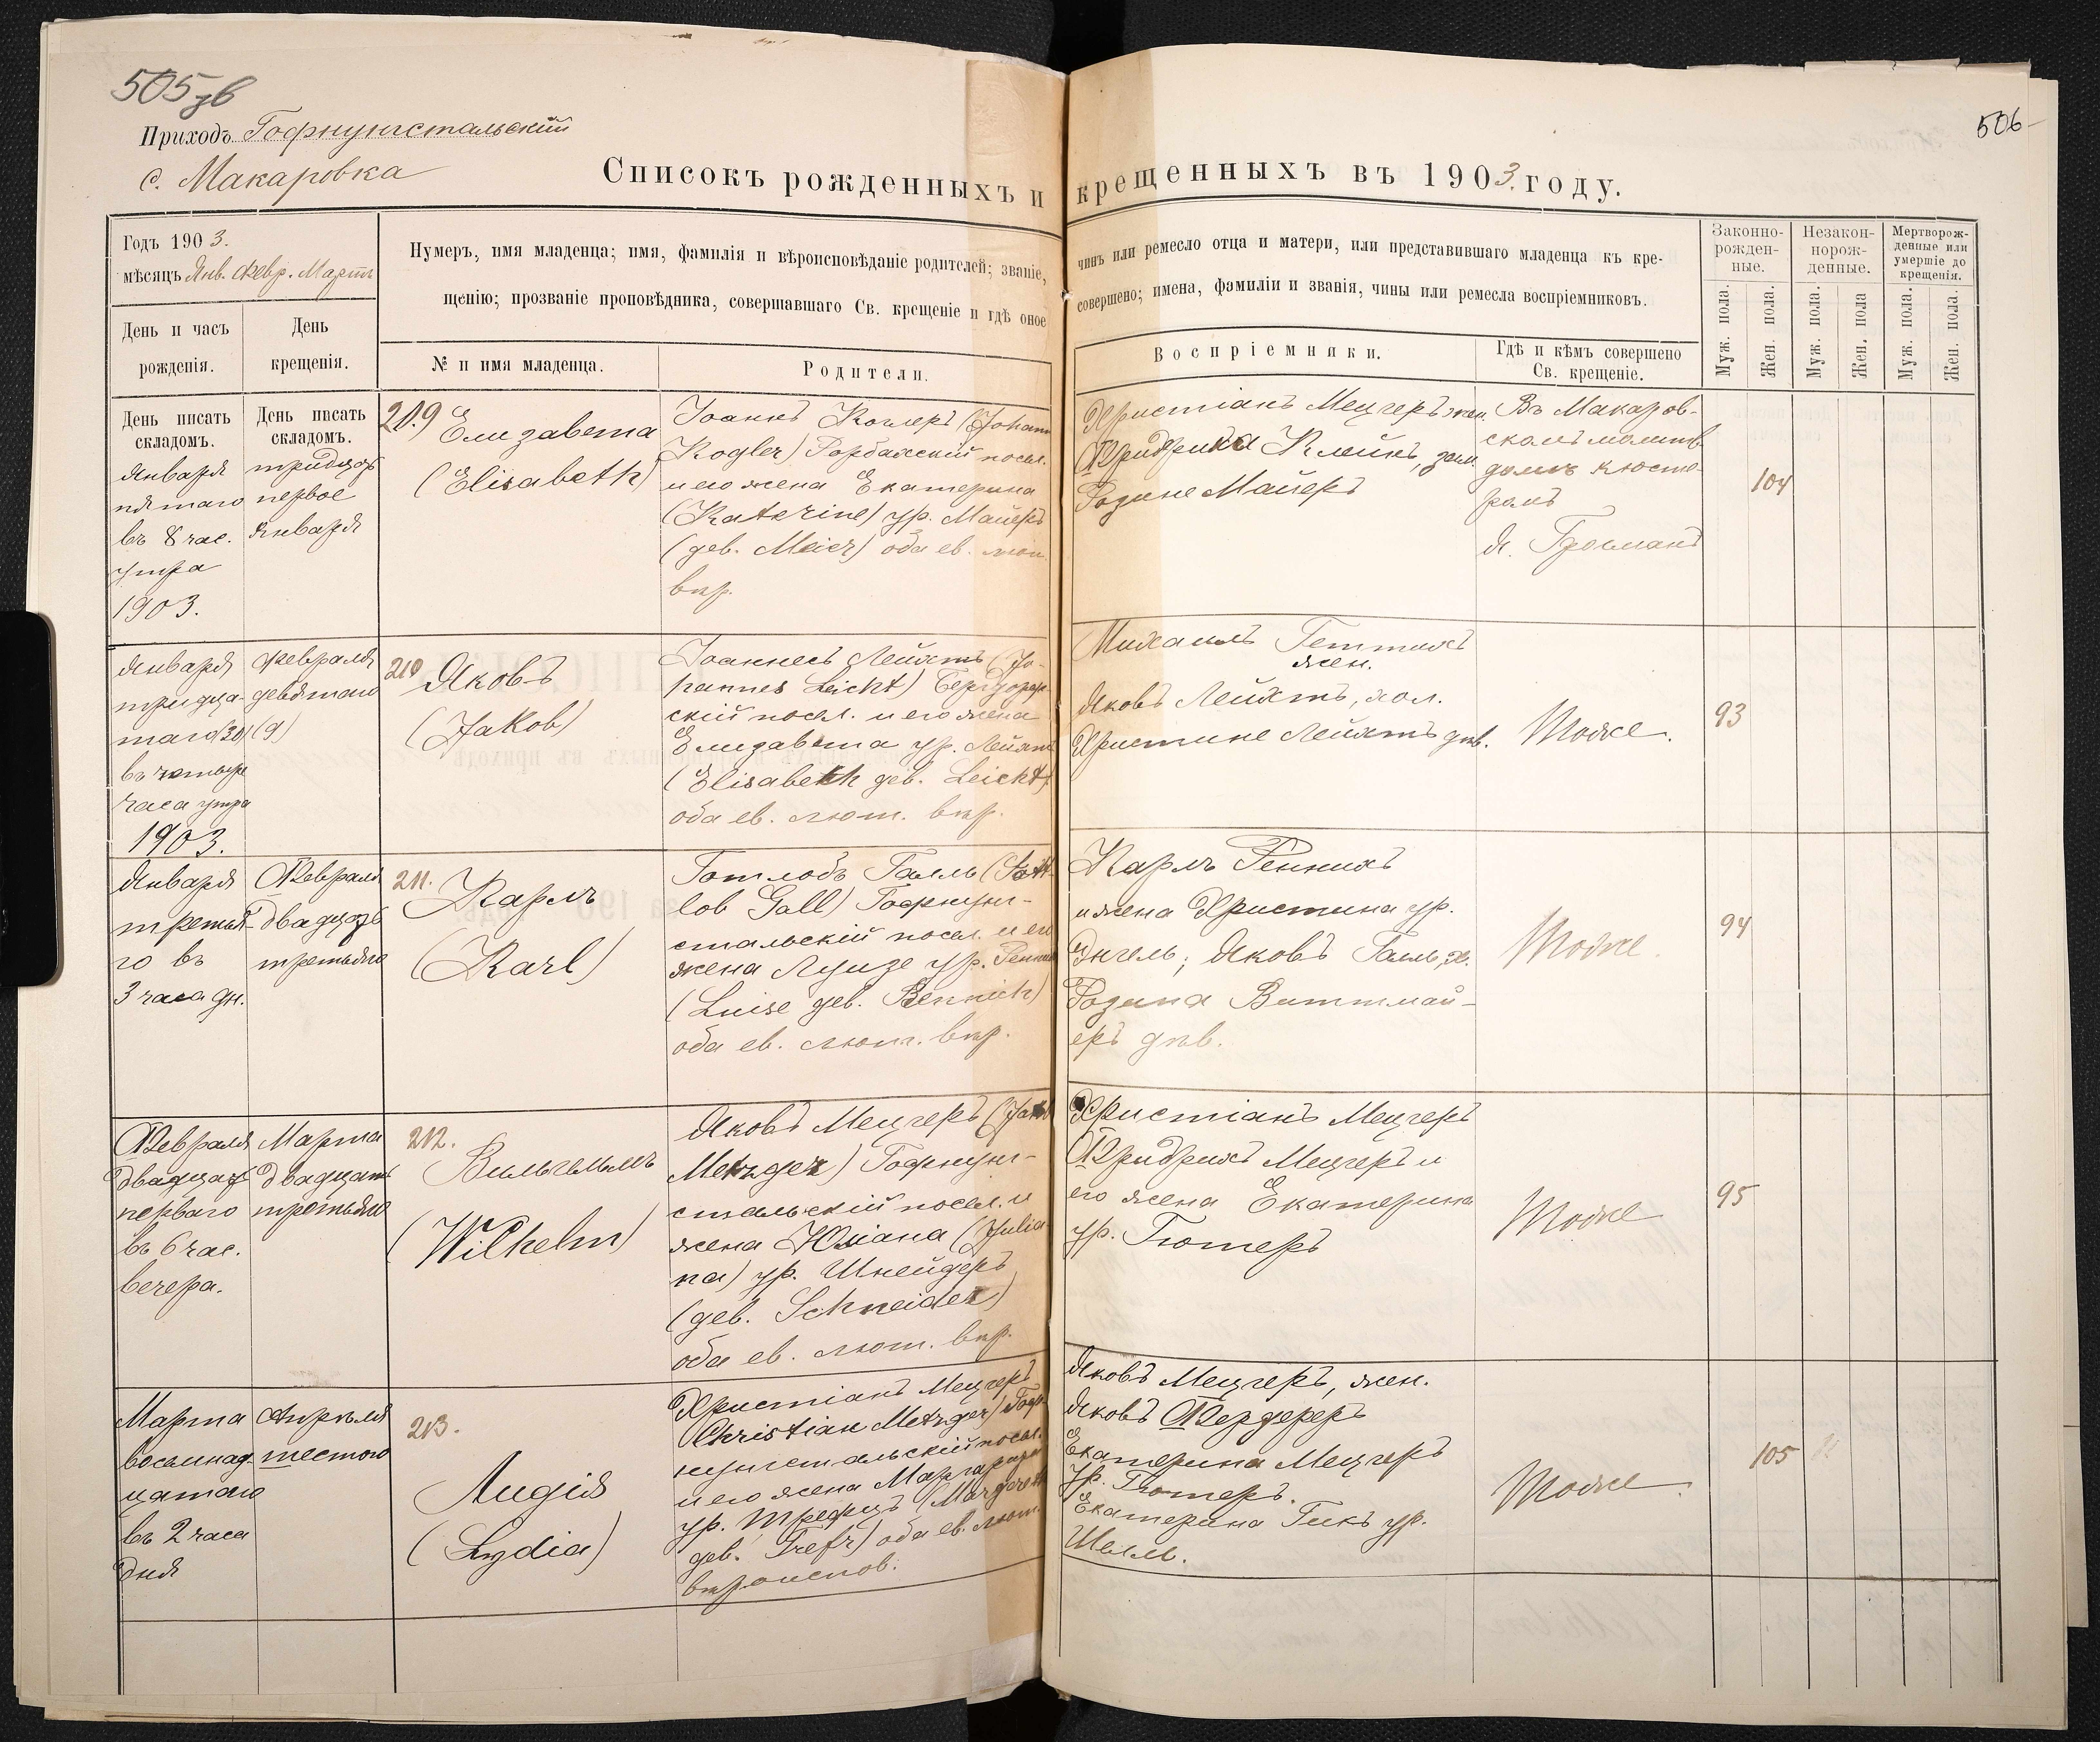 505 зв
506
Приходъ Гофнунгстальскій
с. Макаровка
Списокъ рожденныхъ и крещенныхъ въ 1903. году.
Годъ 1903.
мѣсяцъ Янв. Февр. Мартъ
День и часъ
рожденія.
День
крещенія.
Нумеръ, имя младенца; имя, фамилія и вѣроисповѣданіе родителей; званіе,
чинъ или ремесло отца и матери, или представившаго младенца къ кре-
щенію; прозваніе проповѣдника, совершавшаго Св. крещеніе и гдѣ оное
совершено; имена, фамиліи и званія, чины или ремесла воспріемниковъ.
№ и имя младенца.
Родители.
Воспріемники.
Гдѣ и кѣмъ совершено
Св. крещеніе.
Законно-
рожден-
ные.
Незакон-
норож-
денные.
Мертворож-
денные или
умершіе до
крещенія.
Муж. пола.
Жен. пола.
Муж. пола.
Жен. пола
Муж. пола.
Жен. пола.
День писать
складомъ.
День писать
складомъ.
Января
пятаго
въ 8 час.
утра
1903.
тридцать
первое
Января
209 Елизавета
(Elisabeth)
Іоаннъ Коглеръ (Johann
Kogler)
посел.
и его жена Екатерина
(Katerine) ур. Майеръ
(geb. Meier) оба ев. лют.
вѣр.
Христіанъ Мецгеръ жен.
Фридрика Клейнъ, зам.
Розине Майеръ
Въ Макаров-
скомъ молитв.
домѣ кюсте-
ромъ
Я. Гросманъ
104
Января
тридца-
таго (30)
въ четыре
часа утра
1903.
Февраля
девятаго
(9)
210 Яковъ
(Jakob)
Іоаннесъ Лейхтъ (Jo-
hannes Leicht) Бергдорф-
скій посел. и его жена
Елизавета ур. Лейхтъ
(Elisabeth geb. Leicht)
оба ев. лют. вѣр.
Михаилъ Геттихъ
жен.
Яковъ Лейхтъ, хол.
Христине Лейхтъ дѣв.
Тоже.
93
Января
третья-
го въ
3 часа дн.
Февраля
двадцать
третьяго
211. Карлъ
(Karl)
Готлобъ Галль (Gott-
lob Gall) Гофнунг-
стальскій посел. и его
жена Луизе ур. Реннихъ
(Luise geb. Rennich)
оба ев. лют. вѣр.
Карлъ Реннихъ
и жена Христина ур.
Энгель; Яковъ Галль, х.
Розина Виттмай-
еръ дѣв.
Тоже.
94
Февраля
двадцать
перваго
въ 6 час.
вечера.
Марта
двадцать
третьяго
212. Вильгельмъ
(Wilhelm)
Яковъ Мецгеръ (Jakob
Metzger) Гофнунг-
стальскій посел. и
жена Юліана (Julia-
na) ур. Шнейдеръ
(geb. Schneider)
оба ев. лют. вѣр.
Христіанъ Мецгеръ
Фридрихъ Мецгеръ и
его жена Екатерина
ур. Гютеръ
Тоже
95
Марта
восемнад-
цатаго
въ 2 часа
дня
Апрѣля
шестого
213.
Лидія
(Lydia)
Христіанъ Мецгеръ
(Christian Metzger) Гоф-
нунгстальскій посел.
и его жена Маргарета
ур. Трефцъ (Margareth
geb. Trefz) оба ев. лют.
вѣроисповѣ.
Яковъ Мецгеръ, жен.
Яковъ Фердереръ
Екатерина Мецгеръ
ур. Гютеръ.
Екатерина Гикъ ур.
Шелль.
Тоже.
105